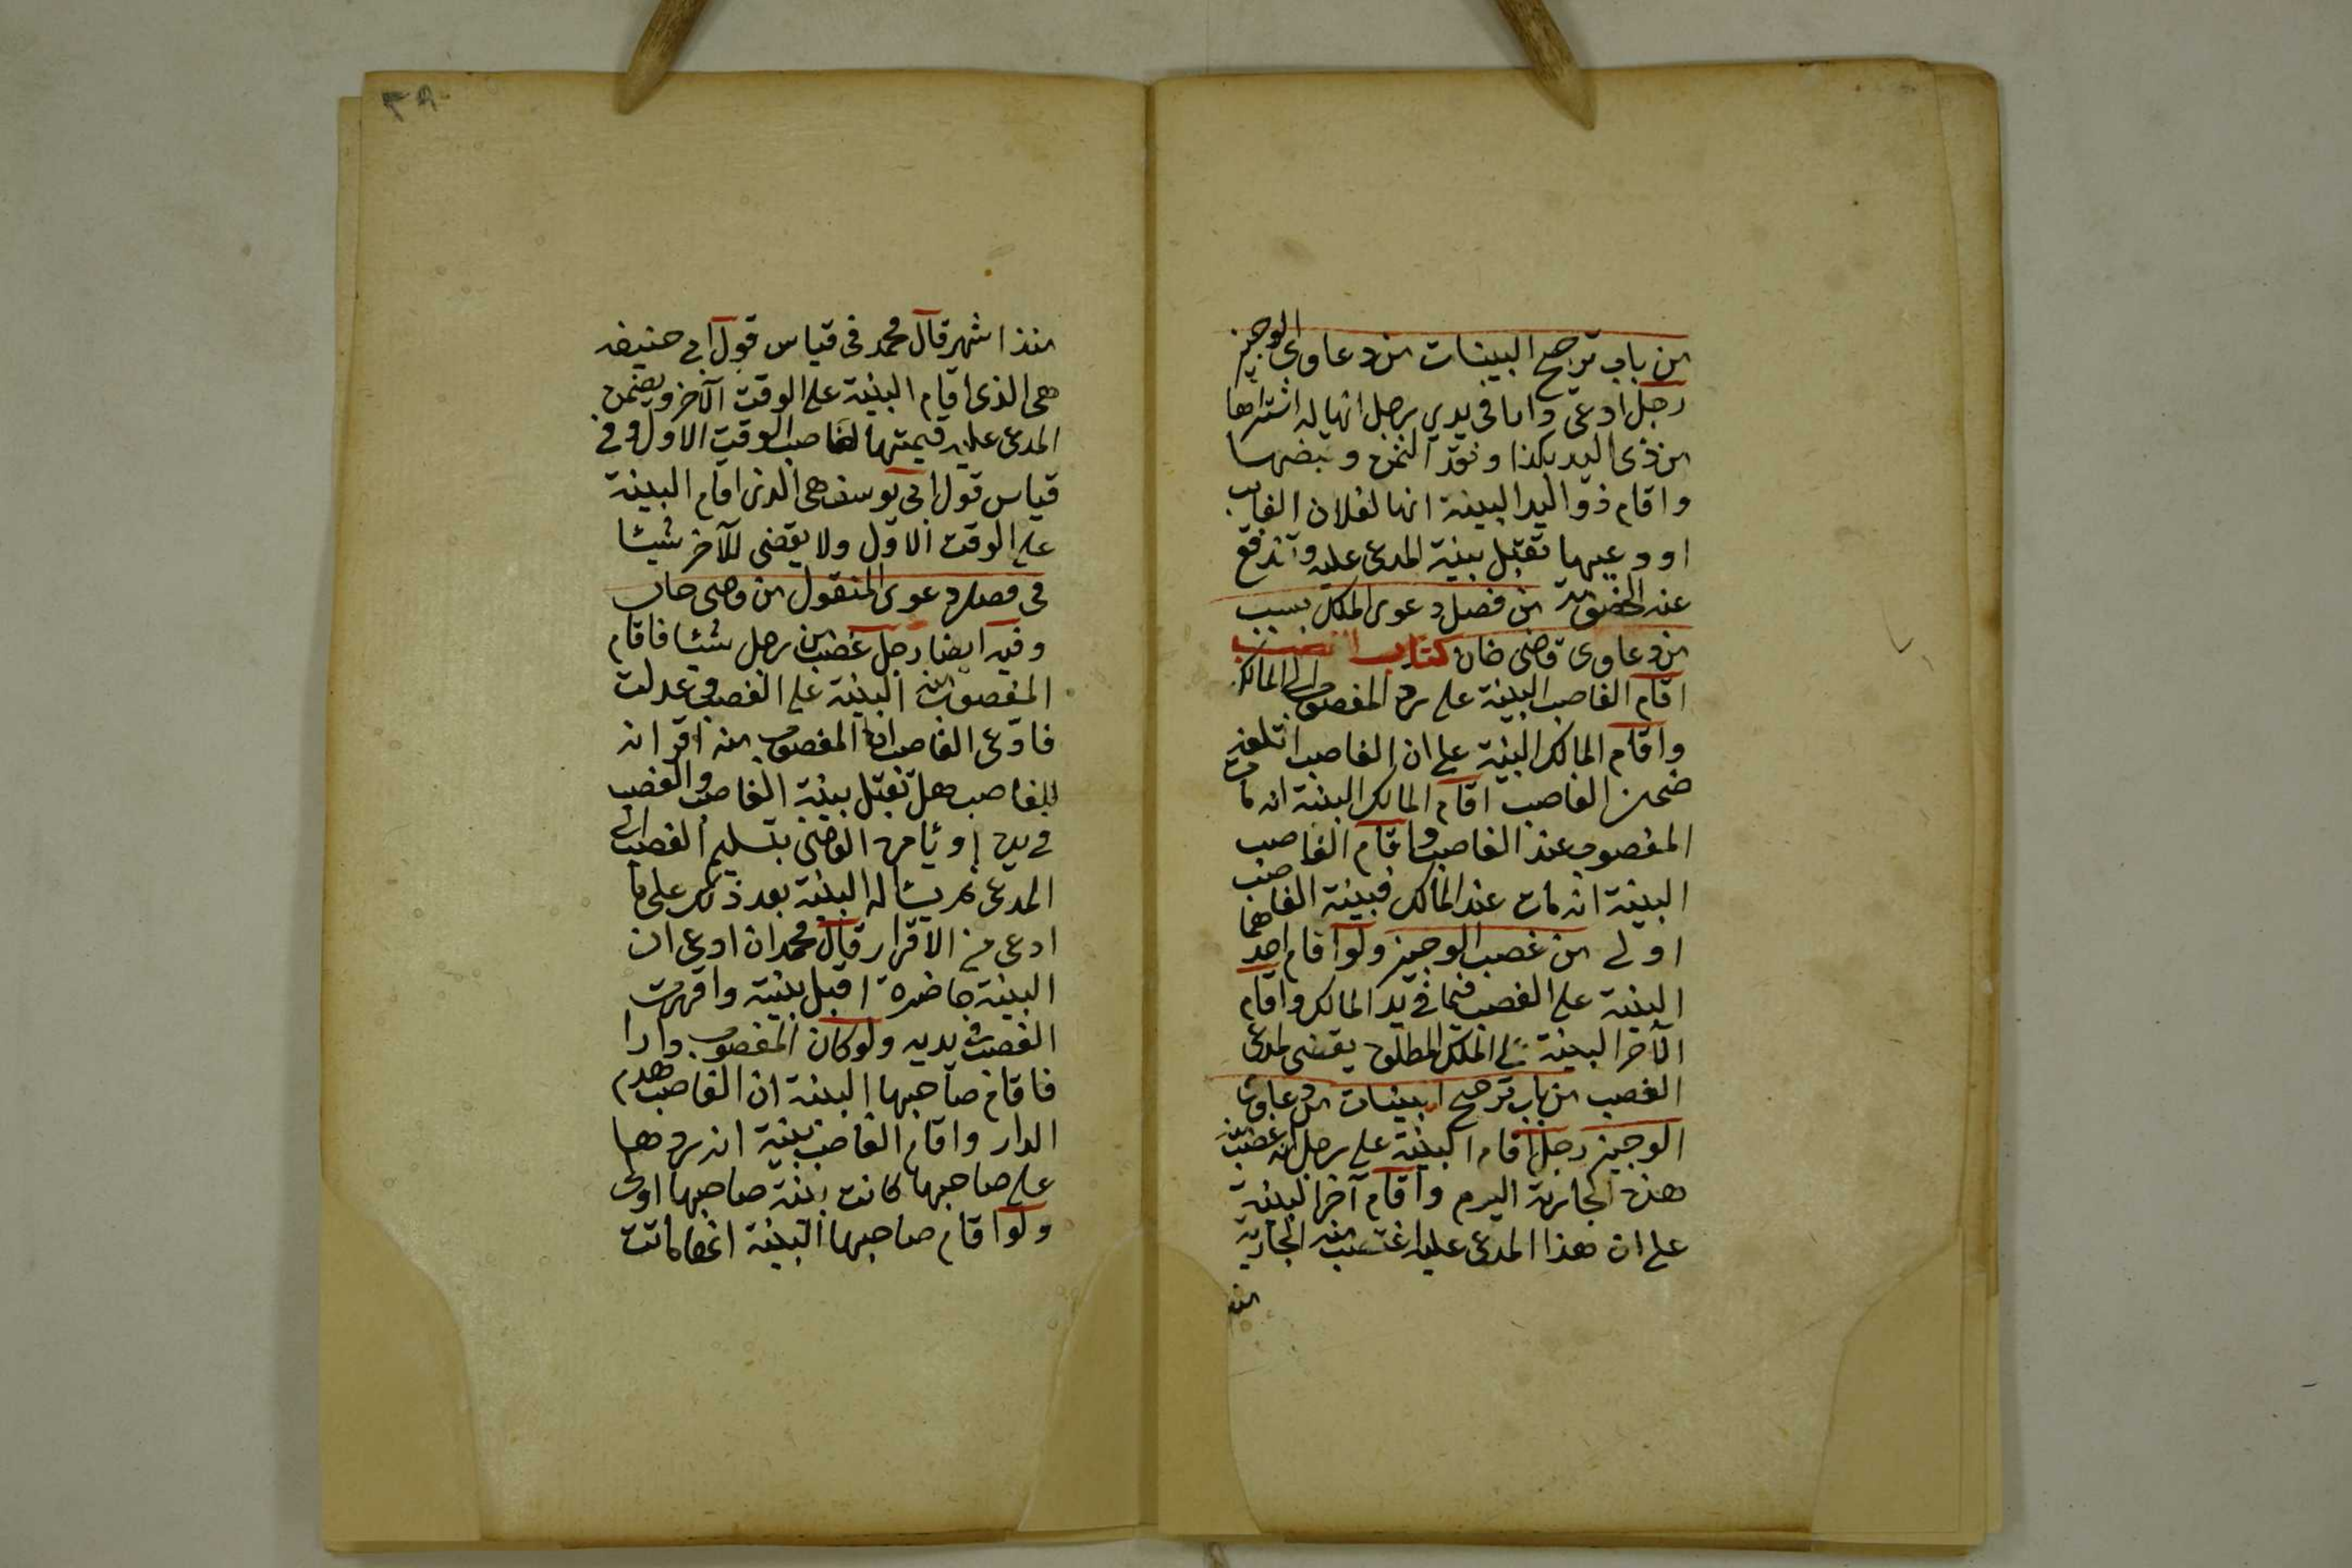 من باب ترجيح البينات من دعاوى الوجيز
رجل ادعى دارا فى يدي رجل انها له اشتراها
من ذى اليد بكذا ونقد الثمن وقبضها
واقام ذو اليد البينة انها لفلان الغايب
اودعيها تقبل بينة المدعى عليه وتندفع
عنه الخصومة من فصل دعوى الملك بسبب
من دعاوى قاضى خان كتاب الغصب
اقام الغاصب البينة على رد المغصوب الى المالك
واقام المالك البينة على ان الغاصب اتلفه
ضمن الغاصب اقام المالك البينة انه مات
المغصوب عند الغاصب واقام الغاصب
البينة انه مات عند المالك فبينة الغاصب
اولى من غصب الوجيز ولو اقام احدهما
البينة على الغصب فيما فى يد المالك واقام
الآخر البينة على الملك المطلق يقضى لمدعى
الغصب من باب ترجيح البينات من دعاوى
الوجيز رجل اقام البينة على رجل انه غصب منه
هذه الجارية اليوم واقام آخر البينة
على ان هذا المدعى عليه اغتصب منه الجارية
منذ
٣٨
منذ اشهر قال محمد فى قياس قول ابى حنيفه
هى الذى اقام البينة على الوقت الآخر ويضمن
المدعى عليه قيمتها لصاحب الوقت الاول وفى
قياس قول ابى يوسف هى الذى اقام البينة
على الوقت الاول ولا يقضى للآخر شيئا
فى فصل دعوى المنقول من قاضى خان
وفيه ايضا رجل غصب من رجل شيئا فاقام
المغصوب منه البينة على الغصب وعدلت
فادعى الغاصب ان المغصوب منه اقر انه
للغاصب هل تقبل بينة الغاصب والغصب
فى يده او يامره القاضى بتسليم الغصب الى
المدعى ثم يساله البينة بعد ذلك على ما
ادعى من الاقرار قال محمد ان ادعى ان
البينة حاضرة اقبل بينته واقررت
الغصب فى يديه ولو كان المغصوب دارا
فاقام صاحبها البينة ان الغاصب هدم
الدار واقام الغاصب بينة انه ردها
على صاحبها كانت بينة صاحبها اولى
ولو اقام صاحبها البينة انها ماتت